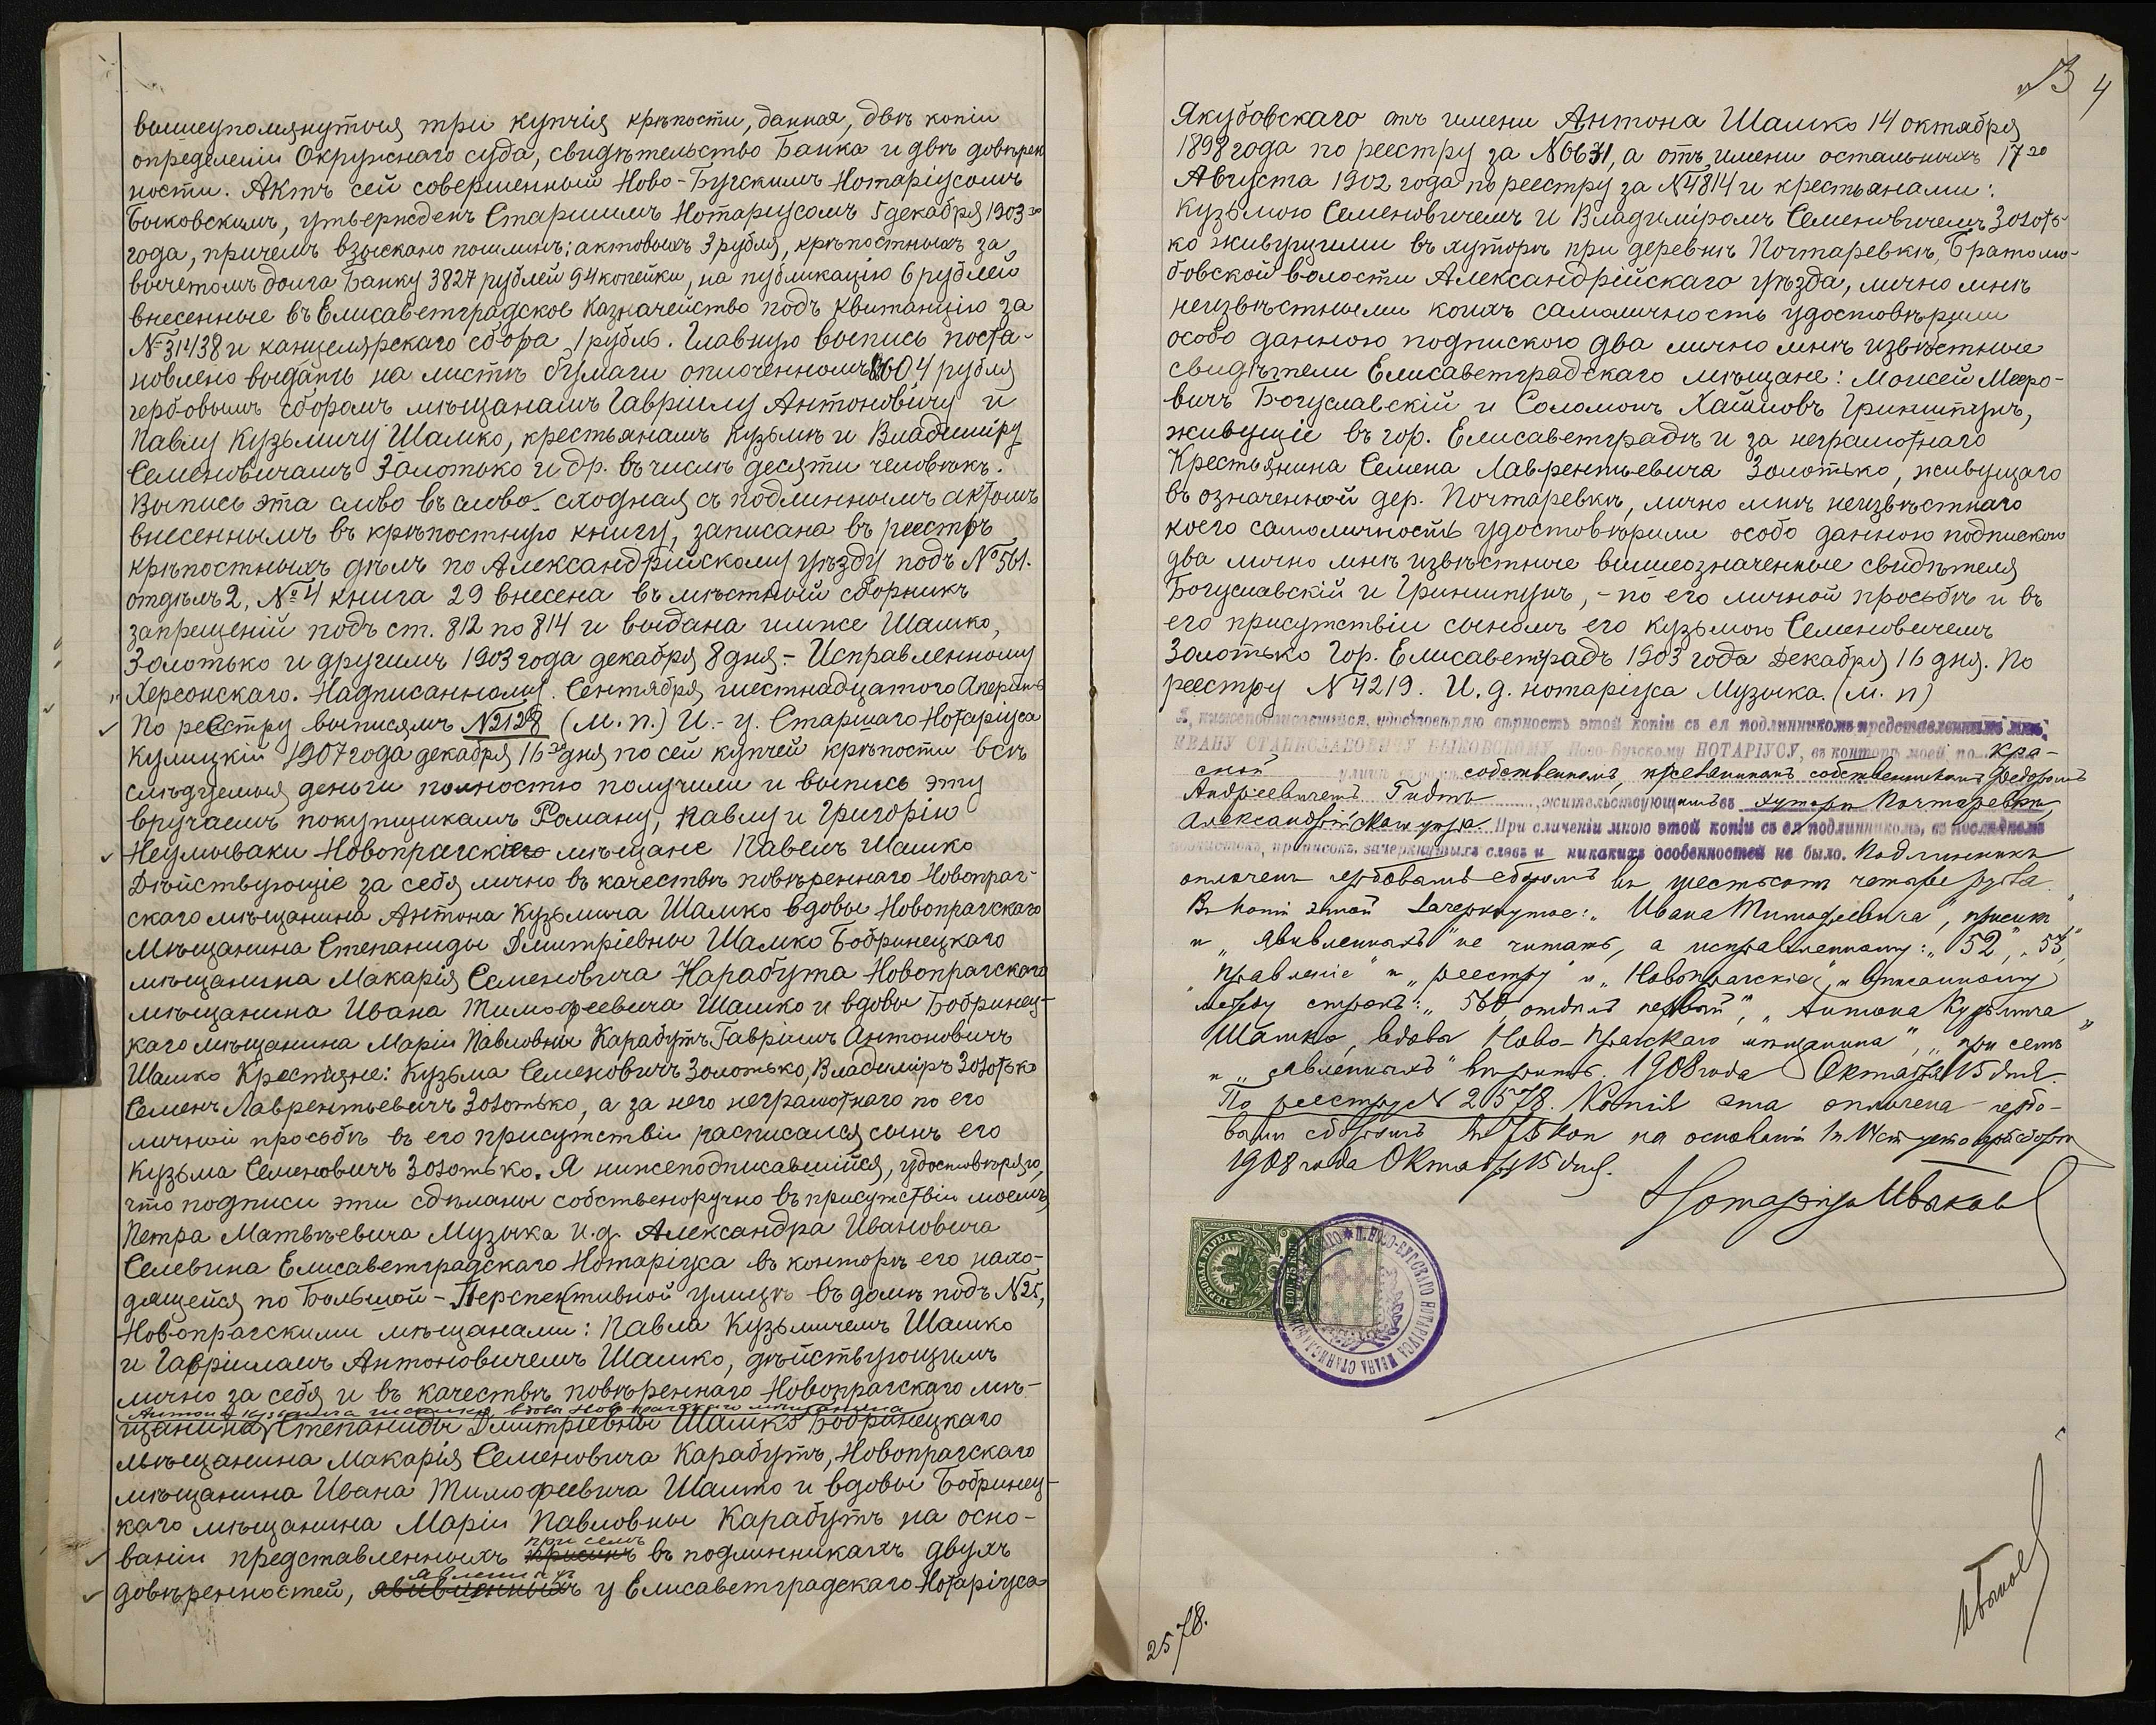 вышеупомянутыя три купчія крѣпости, данная, двѣ копіи
опредѣленіи Окружнаго суда, свидѣтельство Банка и двѣ довѣрен
ности. Актъ сей совершенный Ново-Бугскимъ Нотаріусомъ
Быковскимъ, утвержденъ Старшимъ Нотаріусомъ 5 декабря 1903го
года, причемъ взыскано пошлинъ: актовыхъ 3 рубля, крѣпостныхъ за
вычетомъ долга Банку 3827 рублей 94 копейки, на публикацію 6 рублей
внесенные въ Елисаветградское Казначейство подъ квитанцію за
№ 31438 и канцелярскаго сбора 1 рубль. Главную выпись поста-
новлено выдать на листѣ бумаги оплоченномъ 604 рубля
гербовымъ сборомъ мѣщанамъ Гавріилу Антоновичу и
Павлу Кузьмичу Шамко, крестьянамъ Кузьмѣ и Владиміру
Семеновичамъ Золотько и др. въ числѣ десяти человѣкъ.
Выпись эта слово въ слово сходная съ подлиннымъ актомъ
внесеннымъ въ крѣпостную книгу, записана въ реестръ
крѣпостныхъ дѣлъ по Александрійскому уѣзду подъ № 561.
отдѣлъ 2, № 4 книга 29 внесена въ мѣстный сборникъ
запрещеній подъ ст. 812 по 814 и выдана имже Шамко,
Золотько и другимъ 1903 года декабря 8 дня.- Исправленному
"Херсонскаго. Надписанному. Сентября шестнадцатого
По реестру выписямъ № 2128 (М. п.) И.- у. Старшаго Нотаріуса
Кулицкій 1907 года декабря 16го дня по сей купчей крѣпости всѣ
слѣдуемыя деньги полностью получили и выпись эту
вручаемъ покупщикамъ Роману, Павлу и Григорію
Неумываки Новопрагскіе мѣщане Павелъ Шамко
Дѣйствующіе за себя лично въ качествѣ повѣреннаго Новопраг-
скаго мѣщанина Антона Кузьмича Шамко вдовы Новопрагскаго
Мѣщанина Степаниды Дмитріевны Шамко Бобринецкаго
мѣщанина Макарія Семеновича Карабута Новопрагскаго
мѣщанина Ивана Тимофеевича Шамко и вдовы Бобринец-
каго мѣщанина Маріи Павловны Карабутъ Гавріилъ Антоновичъ
Шамко Крестьяне: Кузьма Семеновичъ Золотько, Владиміръ Золотько
Семенъ Лаврентьевичъ Золотько, а за него неграмотнаго по его
личной просьбѣ въ его присутствіи расписался сынъ его
Кузьма Семеновичъ Золотько. Я нижеподписавшійся, удостовѣряю,
что подписи эти сдѣланы собственоручно въ присутствіи моемъ,
Петра Матвѣевича Музыка и.д. Александра Ивановича
Селевина Елисаветградскаго Нотаріуса въ конторѣ его нахо-
дящейся по Большой-Перспективной улицѣ въ домѣ подъ № 25,
Новопрагскими мѣщанами: Павла Кузьмичемъ Шамко
и Гавріиламъ Антоновичемъ Шамко, дѣйствующимъ
лично за себя и въ качествѣ повѣреннаго Новопрагскаго мѣ-
Антона Кузьмича Шамко, вдовы Новопрагскаго мѣщанина
щанина Степаниды Дмитріевны Шамко Бобринецкаго
мѣщанина Макарія Семеновича Карабутъ, Новопрагскаго
мѣщанина Ивана Тимофеевича Шамко и вдовы Бобринец-
каго мѣщанина Маріи Павловны Карабутъ на осно-
при семъ
ваніи представленныхъ въ подлинникахъ двухъ
явленныхъ
довѣренностей, у Елисаветградскаго Нотаріуса
4
Якубовскаго отъ имени Антона Шамко 14 октября
1898 года по реестру за № 6631, а отъ имени остальныхъ 17го
Августа 1902 года по реестру за № 4814 и крестьянами:
Кузьмою Семеновичемъ и Владиміромъ Семеновичемъ Золоть-
ко живущими въ хуторѣ при деревнѣ Почтаревкѣ, Братолю-
бовской волости Александрійскаго уѣзда, лично мнѣ
неизвѣстными коихъ самоличность удостовѣрили
особо данною подпискою два лично мнѣ извѣстные
свидѣтели Елисаветградскаго мѣщане: Моисей Меро-
вичъ Богуславскій и Соломонъ Хаимовъ Гриншпунъ,
живущіе въ гор. Елисаветградѣ и за неграмотнаго
Крестьянина Семена Лаврентьевича Золотько, живущаго
въ означенной дер. Почтаревкѣ, лично мнѣ неизвѣстнаго
коего самоличность удостовѣрили особо данною подпискою
два лично мнѣ извѣстные вышеозначенные свидѣтеля
Богуславскій и Гриншпунъ, - по его личной просьбѣ и въ
его присутствіи сыномъ его Кузьмою Семеновичемъ
Золотько Гор. Елисаветградъ 1903 года Декабря 16 дня. По
реестру № 4219. И. д. нотаріуса Музыка. (М. п)
Я, нижеподписавшійся, удостовѣряю вѣрность этой копіи съ ея подлинникомъ представленнымъ мнѣ,
ИВАНУ СТАНИСЛАВОВИЧУ БЫКОВСКОМУ Ново-Бугскому НОТАРІУСУ, въ конторѣ моей, по Кра-
сной улицѣ собственномъ, крестьяниномъ собственникомъ Федоромъ
Андреевичемъ Гидтъ, жительствующимъ въ хуторѣ Почтаревкѣ,
Александрійскаго уѣзда. При сличеніи мною этой копіи съ ея подлинникомъ, въ послѣднемъ
подчистокъ, приписокъ, зачеркнутыхъ словъ и никакихъ особенностей не было. Подлинникъ
оплоченъ гербовымъ сборомъ въ шестьсотъ четыре рубля.
Въ копіи этой зачеркнутое: "Ивана Тимофеевича",
и "явивленныхъ" не читать, а исправленному: "52", "53",
"правленіе" и "реестру" и "Новопрагскіе", и вписанному
между строкъ: "560, отдѣлъ первый", "Антона Кузьмича
Шамко, вдовы Ново-Прагскаго мѣщанина", "при семъ"
и "явленныхъ" вѣрить. 1908 года Октября 15 дня.
По реестру № 2578. Копія эта оплочена гербо-
вымъ сборомъ въ 75 коп на основаніи
1908 года Октября 15 дня.
Нотаріусъ Быков
ГЕРБОВАЯ МАРКА
75 КОП
Н.-БУГСКАГО НОТАРІУСА ИВАНА СТАНИСЛАВОВИЧА
2578.